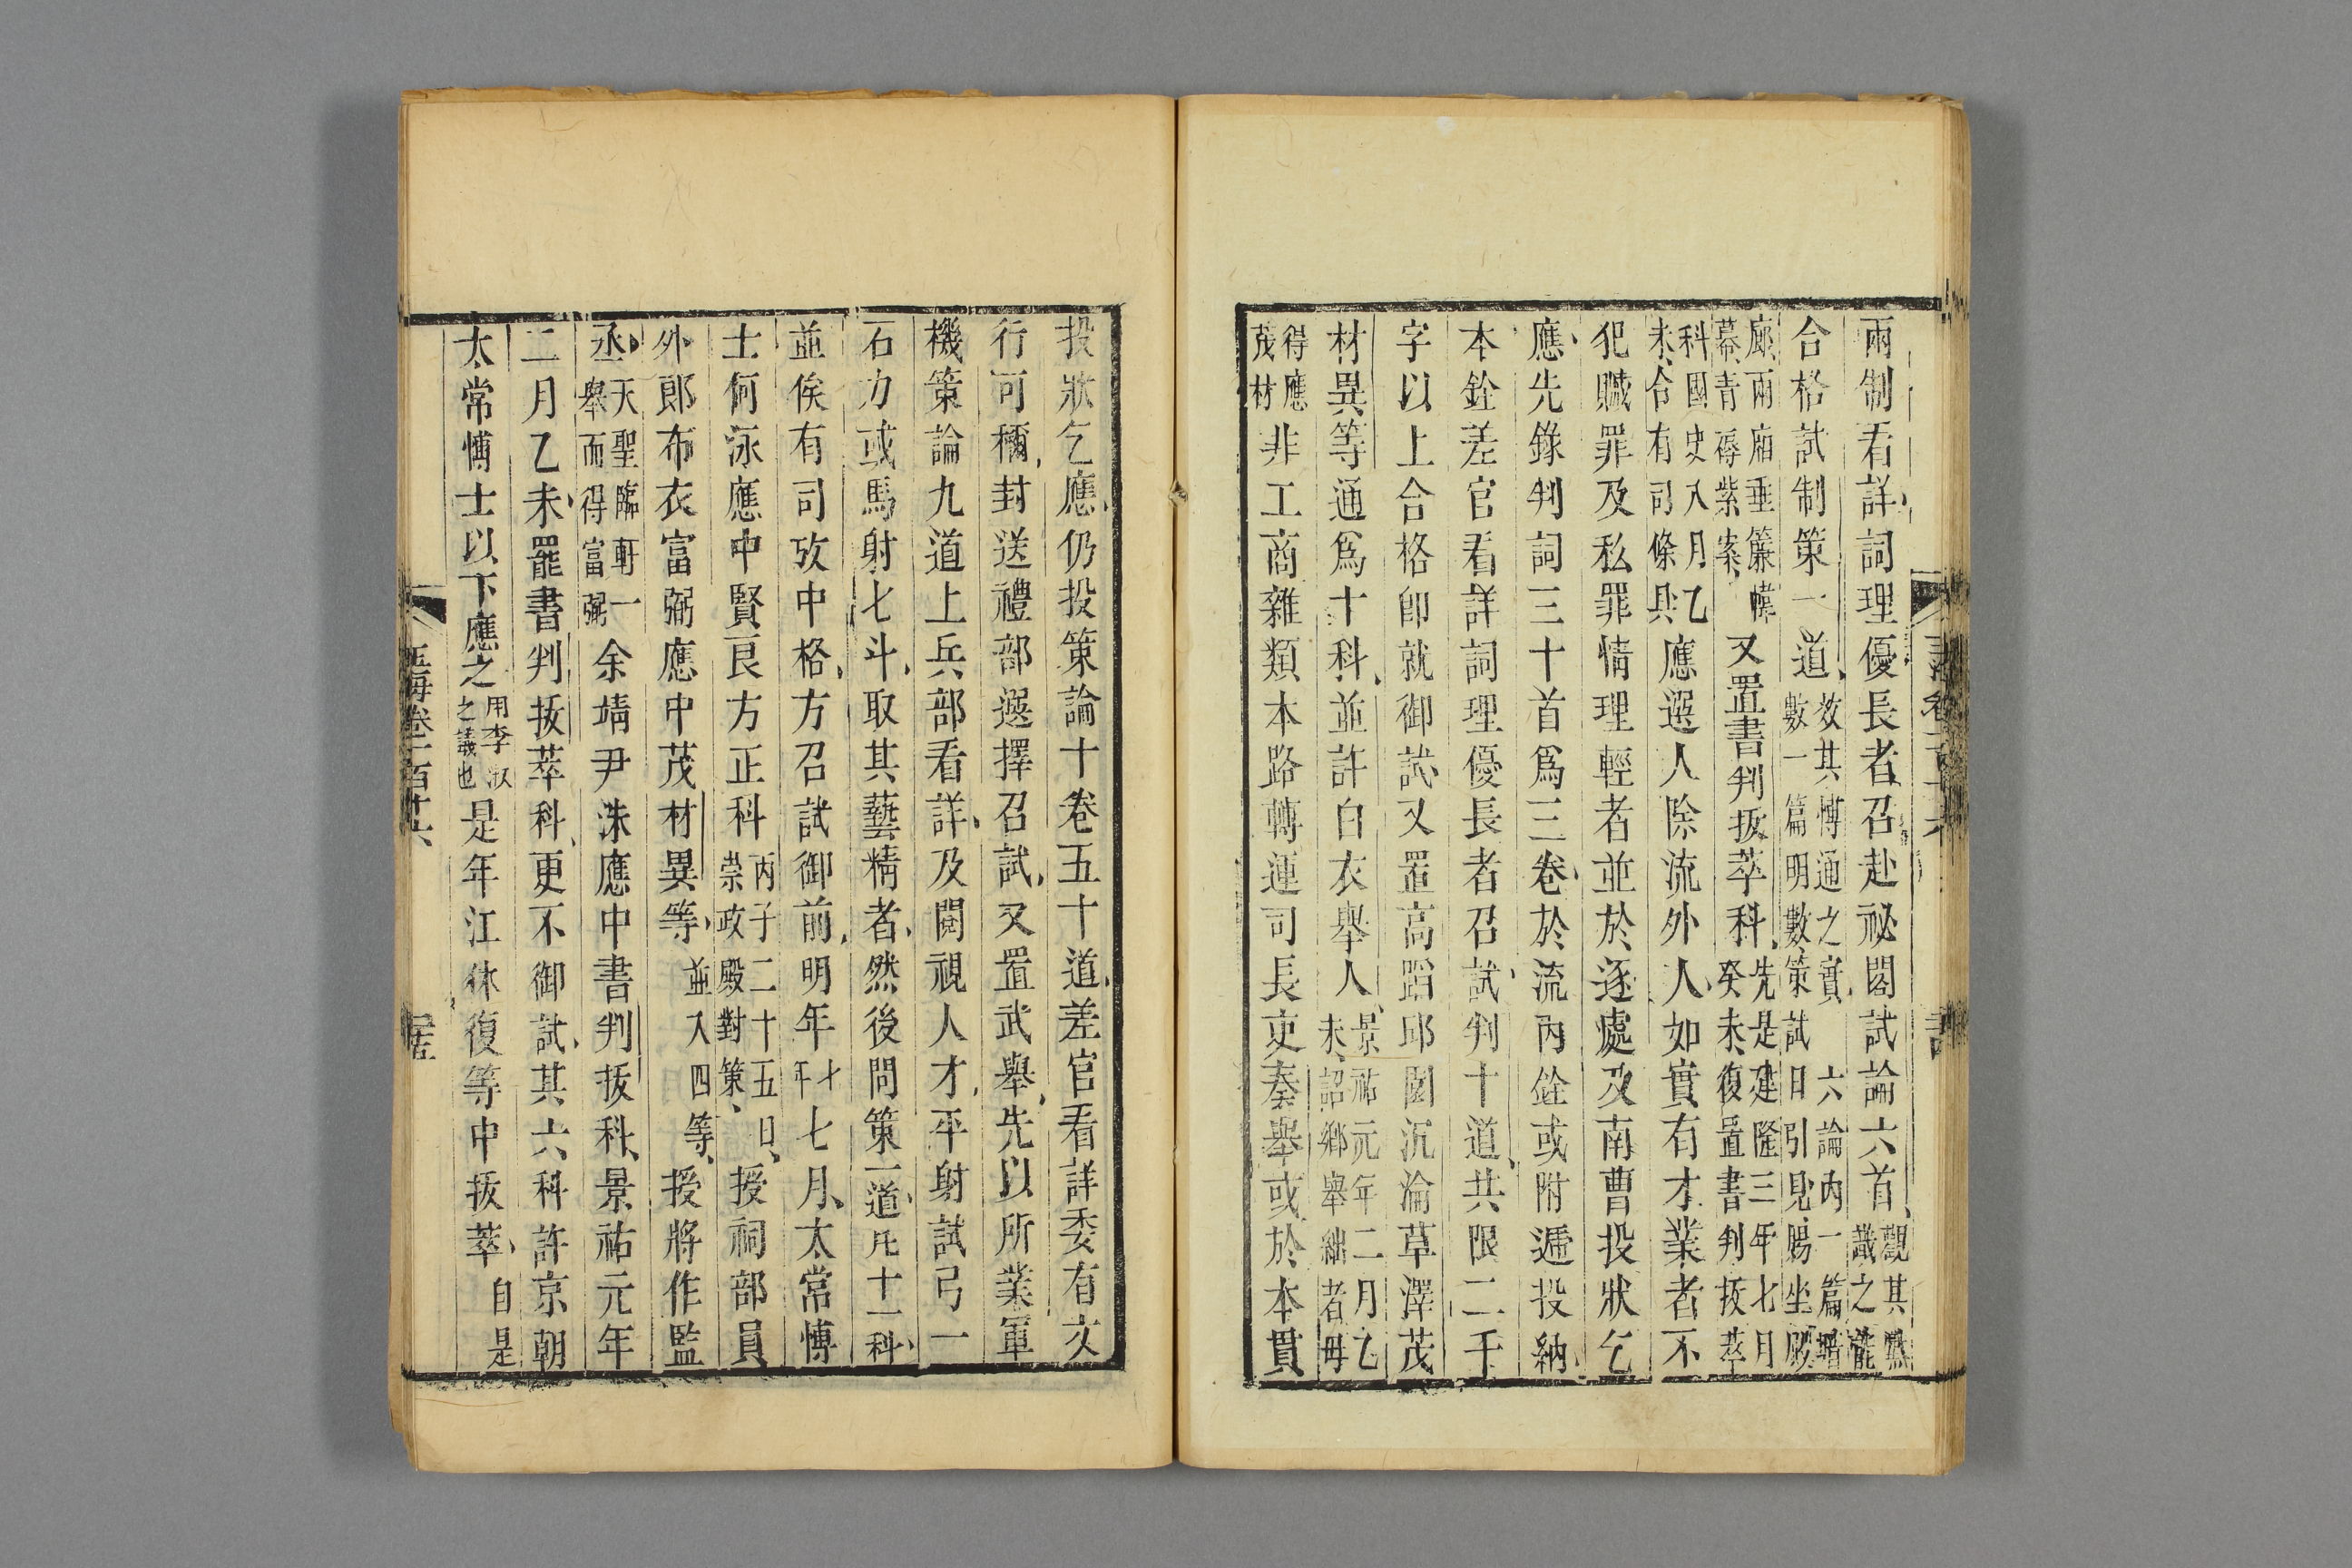 兩制看詳詞理優長者召赴祕閣試論六首觀其識之能
合格試制策一道效其博通之實六論內一篇暗數一篇明數策試日引見賜坐殿
廊兩廂垂簾幃幕青褥紫案又置書判拔萃科先是建隆三年七月癸未復置書判拔萃
科國史八月乙未令有司條具應選人除流外人如實有才業者不
犯贓罪及私罪情理輕者並於逐處及南曹投狀乞
應先錄判詞三十首爲三卷於流內銓或附遞投納
本銓差官看詳詞理優長者召試判十道共限二千
字以上合格卽就御試又置高蹈邱園沉淪草澤茂
材異等通爲十科並許白衣舉人景祐元年二月乙未詔鄉舉絀者毋
得應茂材非工商雜類本路轉運司長吏奏舉或於本貫
投狀乞應仍投策論十卷五十道差官看詳委有文
行可稱封送禮部選擇召試又置武舉先以所業軍
機策論九道上兵部看詳及閱視人才平射試弓一
石力或馬射七斗取其藝精者然後問策一道凡十一科
並俟有司攷中格方召試御前明年七年七月太常博
士何泳應中賢良方正科丙子二十五日崇政殿對策授祠部員
外郎布衣富弼應中茂材異等並入四等授將作監
丞天聖臨軒一舉而得富弼余靖尹洙應中書判拔科景祐元年
二月乙未罷書判拔萃科更不御試其六科許京朝
太常博士以下應之用李淑之議也是年江休復等中拔萃自是
玉海卷一百十六